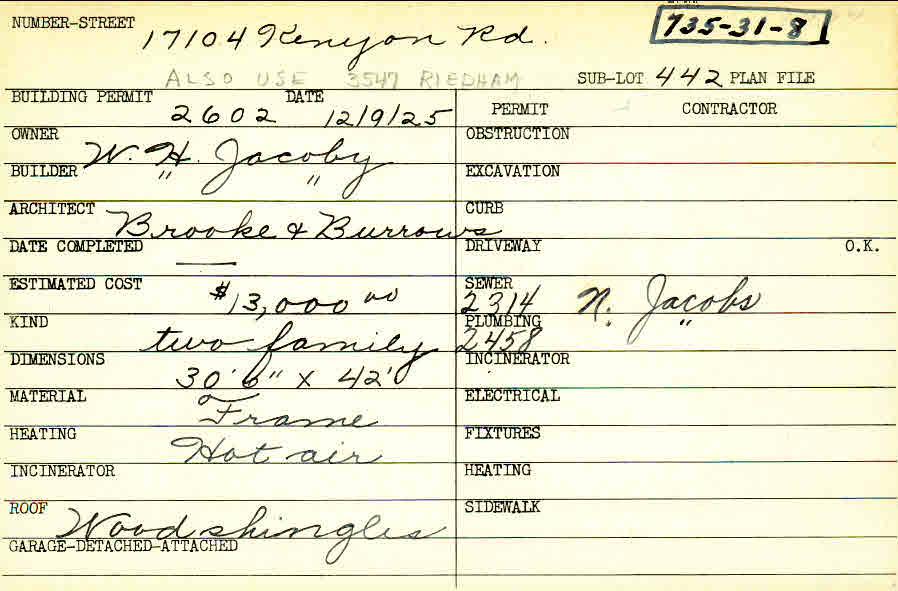 NUMBER-STREET 17104 Kenyon Rd. 735-31-8
ALSO USE 3547 RIEDHAM SUB-LOT 442 PLAN FILE
BUILDING PERMIT 2602 DATE 12/9/25
PERMIT CONTRACTOR
OWNER W. H. Jacoby
BUILDER " "
ARCHITECT Brooke & Burrows
DATE COMPLETED —
ESTIMATED COST $13,000.00
KIND two family
DIMENSIONS 30'6" x 42'
MATERIAL Frame
HEATING Hot air
INCINERATOR
ROOF Wood shingles
GARAGE-DETACHED-ATTACHED
OBSTRUCTION
EXCAVATION
CURB
DRIVEWAY O.K.
SEWER 2314 N. Jacobs
PLUMBING 2458 "
INCINERATOR
ELECTRICAL
FIXTURES
HEATING
SIDEWALK